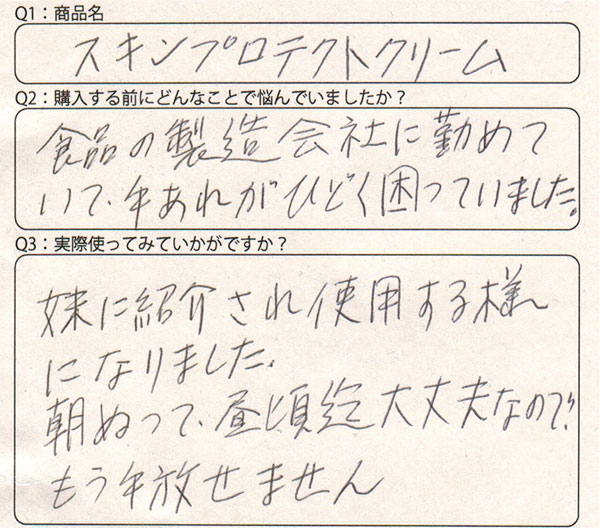 Q1：商品名
スキンプロテクトクリーム
Q2：購入する前にどんなことで悩んでいましたか？
食品の製造会社に勤めて
いて、手あれがひどく困っていました。
Q3：実際使ってみていかがですか？
妹に紹介され使用する様
になりました。
朝ぬって、昼頃迄大丈夫なので！
もう手放せません